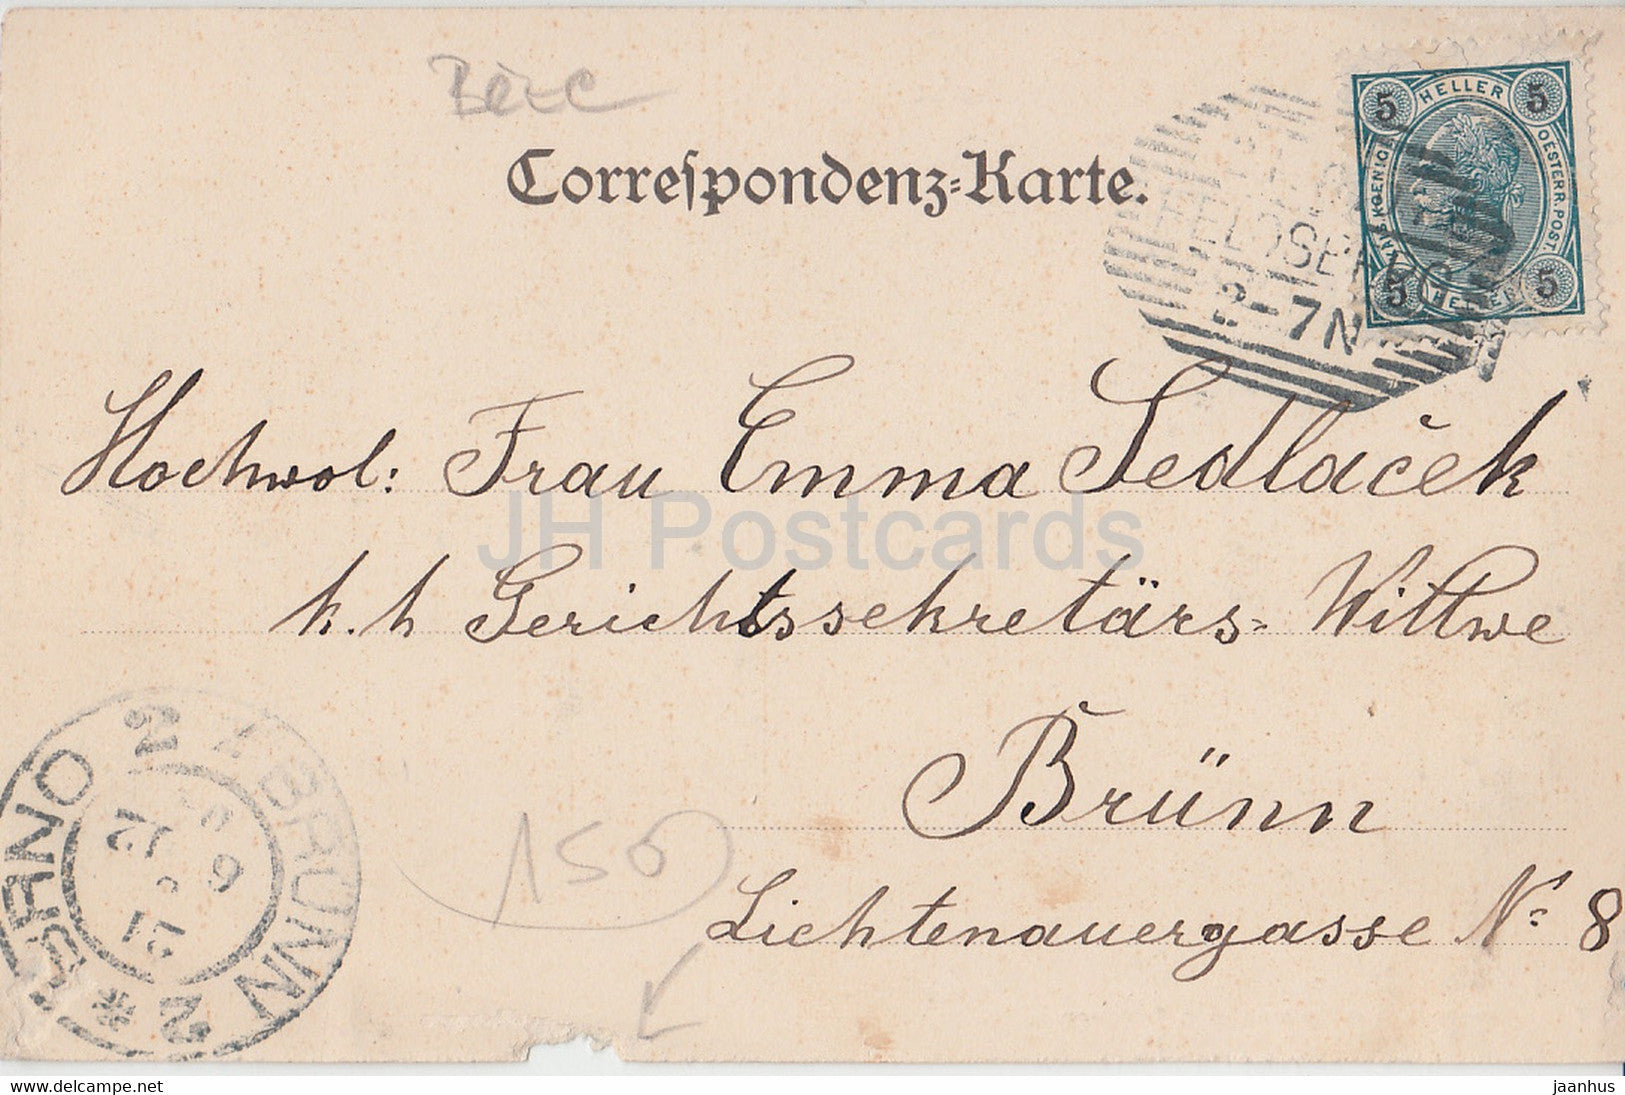 Correspondenz-Karte.
5 HELLER 5
KAIS. KOENIGL.
OESTERR. POST.
5 HELLER 5
2-7N
Hochwol: Frau Emma Sedlaček
k. k. Gerichtssekretärs-Wittwe
Brünn
Lichtenauergasse No 8
BRÜNN 2
* BRNO 2
150
JH Postcards
www.delcampe.net
jaanhus